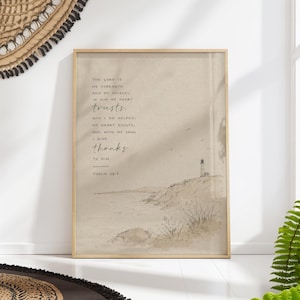 THE LORD IS
MY STRENGTH
AND MY SHIELD;
IN HIM MY HEART
trusts,
AND I AM HELPED;
MY HEART EXULTS,
AND WITH MY SONG
I GIVE
thanks
TO HIM.
PSALM 28:7